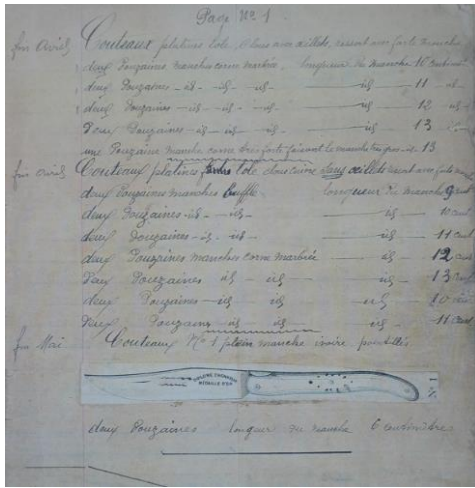 Page No 1
fin Avril Couteaux platines tôle, clous aux œillets, ressort avec forte mouche
deux Douzaines manches corne marbrée. longueur du manche 10 centim
deux Douzaines - id - id - id - id - 11 id
deux Douzaines - id - id - id - id - 12 id
Deux Douzaines - id - id - id - id - 13 id
une Douzaine manche corne très forte faisant le manche très gros id. 13
fin Avril Couteaux platines tôle clous cuivre sans œillets
deux Douzaines manches buffle longueur du manche 9 cent
deux Douzaines - id - id - id - 10 cent
deux Douzaines - id - id - id - 11 cent
deux Douzaines manches corne marbrée - id - 12 cent
Deux Douzaines id - id - id - 13 cent
deux Douzaines - id id id - 10 cent
Deux Douzaines id id id - 11 cent
fin Mai Couteaux No 1 plein manche ivoire pointillés
No 1
deux Douzaines longueur du manche 6 centimètres